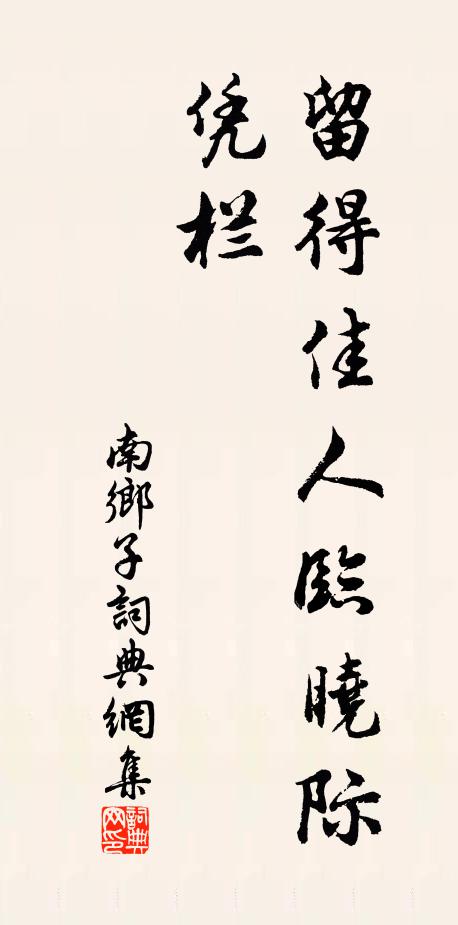 留得佳人臨曉际
凭栏
南鄉子詞典網集
詞典
网印